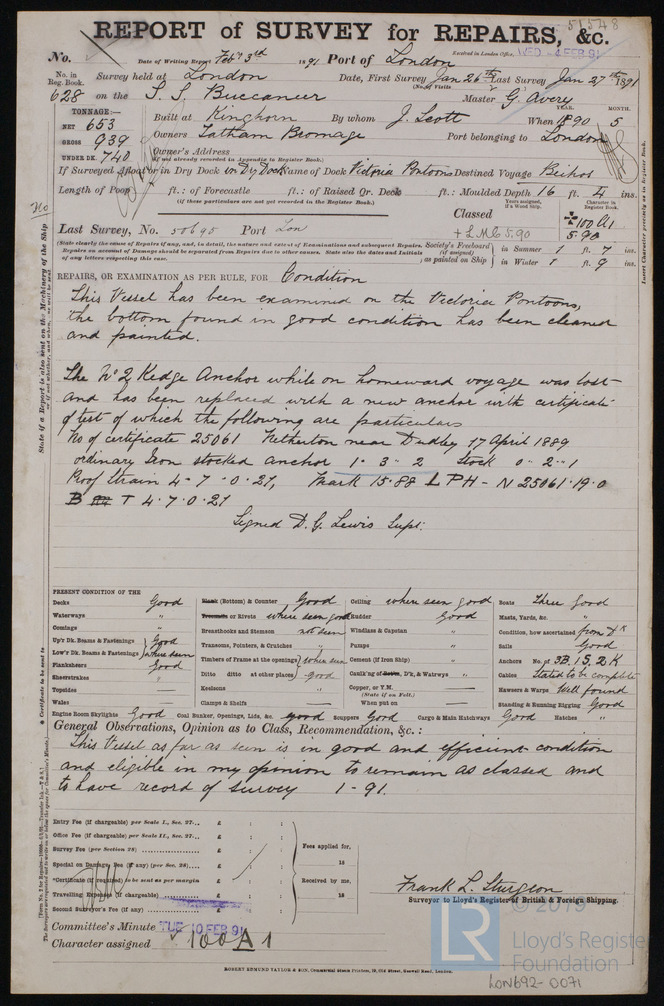 51578
REPORT of SURVEY for REPAIRS, &c.
No. Date of Writing Report Feby 3rd 1891 Port of London Received in London Office, WED 4 FEB 91
No. in Reg. Book. Survey held at London Date, First Survey Jan 26th Last Survey Jan 27th 1891
(No. of Visits
628 on the S. S. Buccaneer Master G. Avery
TONNAGE:— YEAR. MONTH.
NET 653 Built at Kinghorn By whom J. Scott When 1890 5
GROSS 939 Owners Latham Bromage Port belonging to London
UNDER DK. 740 Owner's Address
(if not already recorded in Appendix to Register Book.)
If Surveyed Afloat or in Dry Dock in Dry Dock Name of Dock Victoria Pontoons Destined Voyage
Length of Poop ft.: of Forecastle ft.: of Raised Qr. Deck ft.: Moulded Depth 16 ft. 4 ins.
(if these particulars are not yet recorded in the Register Book.)
Years assigned, if a Wood Ship. Character in Register Book.
Last Survey, No. 50695 Port Lon Classed 100 A1
+ LMC 5.90 5.90
(State clearly the cause of Repairs if any, and, in detail, the nature and extent of Examinations and subsequent Repairs.
Repairs on account of Damage should be separated from Repairs due to other causes. State also the dates and initials
of any letters respecting this case.
Society's Freeboard (if assigned) as painted on Ship in Summer 1 ft. 7 ins.
in Winter 1 ft. 9 ins.
REPAIRS, OR EXAMINATION AS PER RULE, FOR Condition
This Vessel has been examined on the Victoria Pontoons,
the bottom found in good condition has been cleaned
and painted.
The No 2 Kedge Anchor while on homeward voyage was lost
and has been replaced with a new anchor with certificate
of test of which the following are particulars
No of certificate 25061 Netherton near Dudley 17 April 1889
ordinary Iron stocked anchor 1 - 3 - 2 Stock 0 - 2 - 1
Proof Strain 4 - 7 - 0 - 21, Mark 15.88 L P H - N 25061.19.0
B T 4.7.0.21
Signed D. G. Lewis Supt.
PRESENT CONDITION OF THE
Decks Good
Waterways "
Comings "
Up'r Dk. Beams & Fastenings Good
Low'r Dk. Beams & Fastenings where seen
Planksheers Good
Sheerstrakes "
Topsides —
Wales —
Engine Room Skylights Good
Plank (Bottom) & Counter Good
Treenails or Rivets where seen good
Breasthooks and Stemson not seen
Transoms, Pointers, & Crutches "
Timbers of Frame at the openings where seen
Ditto ditto at other places good
Keelsons "
Clamps & Shelfs —
Coal Bunker, Openings, Lids, &c. good
Ceiling where seen good
Rudder Good
Windlass & Capstan "
Pumps "
Cement (if Iron Ship) "
Caulk'g of Bottom, D'k, & Watrwys "
Copper, or Y.M. —
(State if on Felt.)
When put on —
Scuppers Good Cargo & Main Hatchways Good Hatches "
Boats Three Good
Masts, Yards, &c. "
Condition, how ascertained from Dk
Sails Good
Anchors No. of 3B. 1S. 2K
Cables Stated to be complete
Hawsers & Warps Well found
Standing & Running Rigging Good
General Observations, Opinion as to Class, Recommendation, &c. :
This Vessel as far as seen is in good and efficient condition
and eligible in my opinion to remain as classed and
to have record of survey 1-91.
Entry Fee (if chargeable) per Scale I., Sec. 27... £ : :
Office Fee (if chargeable) per Scale II., Sec. 27... £ : :
Survey Fee (per Section 28) £ : :
Special on Damage Fee (if any) (per Sec. 28) £ : :
*Certificate (if required) to be sent as per margin £ : :
Travelling Expenses (if chargeable) £ : :
Second Surveyor's Fee (if any) £ : :
Fees applied for,
18
Received by me,
18
Frank L. Sturgeon
Surveyor to Lloyd's Register of British & Foreign Shipping.
Committee's Minute TUE 10 FEB 91
Character assigned 100 A 1
ROBERT EDMUND TAYLOR & SON, Commercial Steam Printers, 19, Old Street, Goswell Road, London.
© 2019
LR
Lloyd's Register
Foundation
LON692-0071
No
State if a Report is also sent on the Machinery of the Ship
Insert Character precisely as in Register Book.